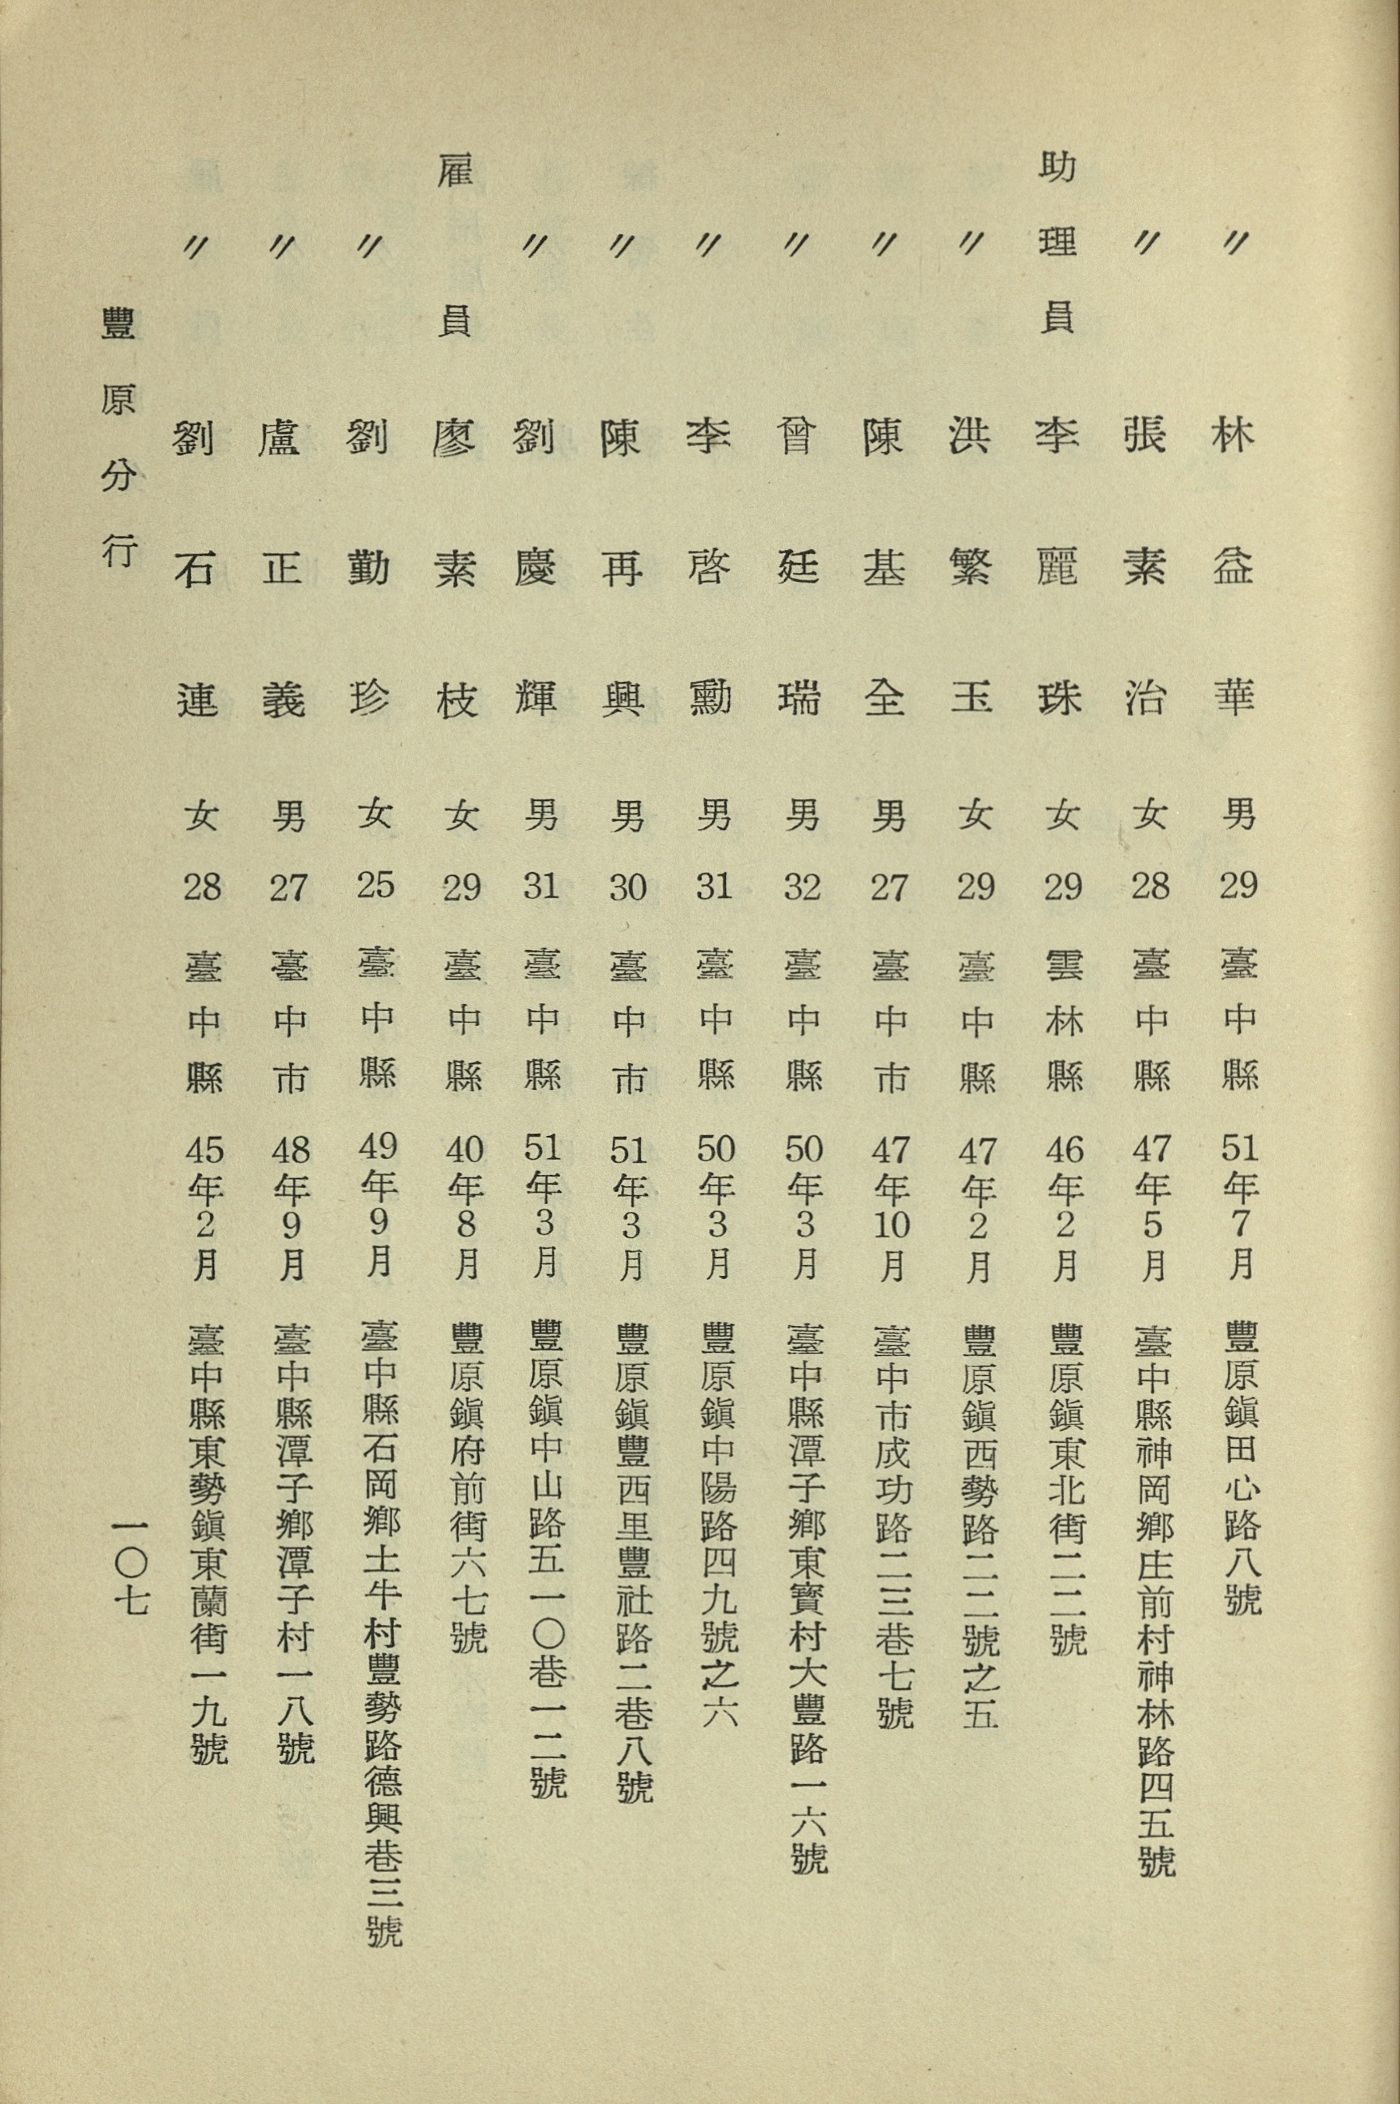 〃 林益華 男 29 臺中縣 51年7月 豐原鎭田心路八號
〃 張素治 女 28 臺中縣 47年5月 臺中縣神岡鄉庄前村神林路四五號
助理員 李麗珠 女 29 雲林縣 46年2月 豐原鎭東北街二二號
〃 洪繁玉 女 29 臺中縣 47年2月 豐原鎭西勢路二二號之五
〃 陳基全 男 27 臺中市 47年10月 臺中市成功路二三巷七號
〃 曾廷瑞 男 32 臺中縣 50年3月 臺中縣潭子鄉東寳村大豐路一六號
〃 李啓勳 男 31 臺中縣 50年3月 豐原鎭中陽路四九號之六
〃 陳再興 男 30 臺中市 51年3月 豐原鎭豐西里豐社路二巷八號
〃 劉慶輝 男 31 臺中縣 51年3月 豐原鎭中山路五一〇巷一二號
雇員 廖素枝 女 29 臺中縣 40年8月 豐原鎭府前街六七號
〃 劉勤珍 女 25 臺中縣 49年9月 臺中縣石岡鄉土牛村豐勢路德興巷三號
〃 盧正義 男 27 臺中市 48年9月 臺中縣潭子鄉潭子村一八號
〃 劉石連 女 28 臺中縣 45年2月 臺中縣東勢鎭東蘭街一九號
豐原分行 一〇七